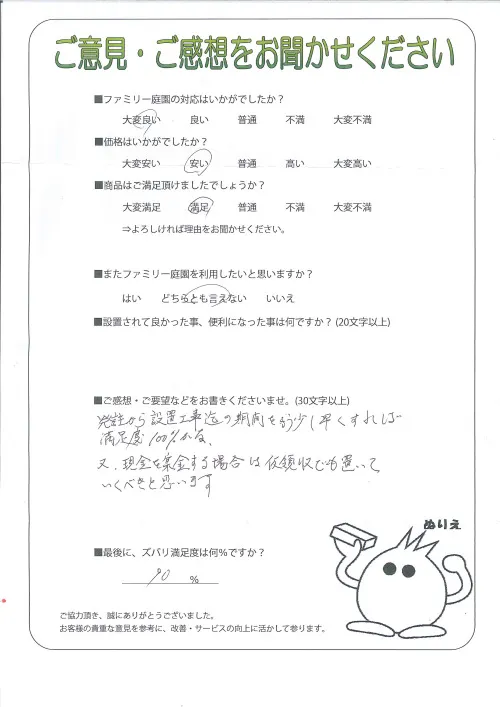 ご意見・ご感想をお聞かせください
■ファミリー庭園の対応はいかがでしたか？
大変良い 良い 普通 不満 大変不満
■価格はいかがでしたか？
大変安い 安い 普通 高い 大変高い
■商品はご満足頂けましたでしょうか？
大変満足 満足 普通 不満 大変不満
⇒よろしければ理由をお聞かせください。
■またファミリー庭園を利用したいと思いますか？
はい どちらとも言えない いいえ
■設置されて良かった事、便利になった事は何ですか？(20文字以上)
■ご感想・ご要望などをお書きくださいませ。(30文字以上)
発注から設置工事迄の期間をもう少し早くすれば
満足度100%かな、
又、現金を集金する場合は仮領収でも置いて
いくべきと思います
ぬりえ
■最後に、ズバリ満足度は何%ですか？
90 %
ご協力頂き、誠にありがとうございました。
お客様の貴重な意見を参考に、改善・サービスの向上に活かして参ります。